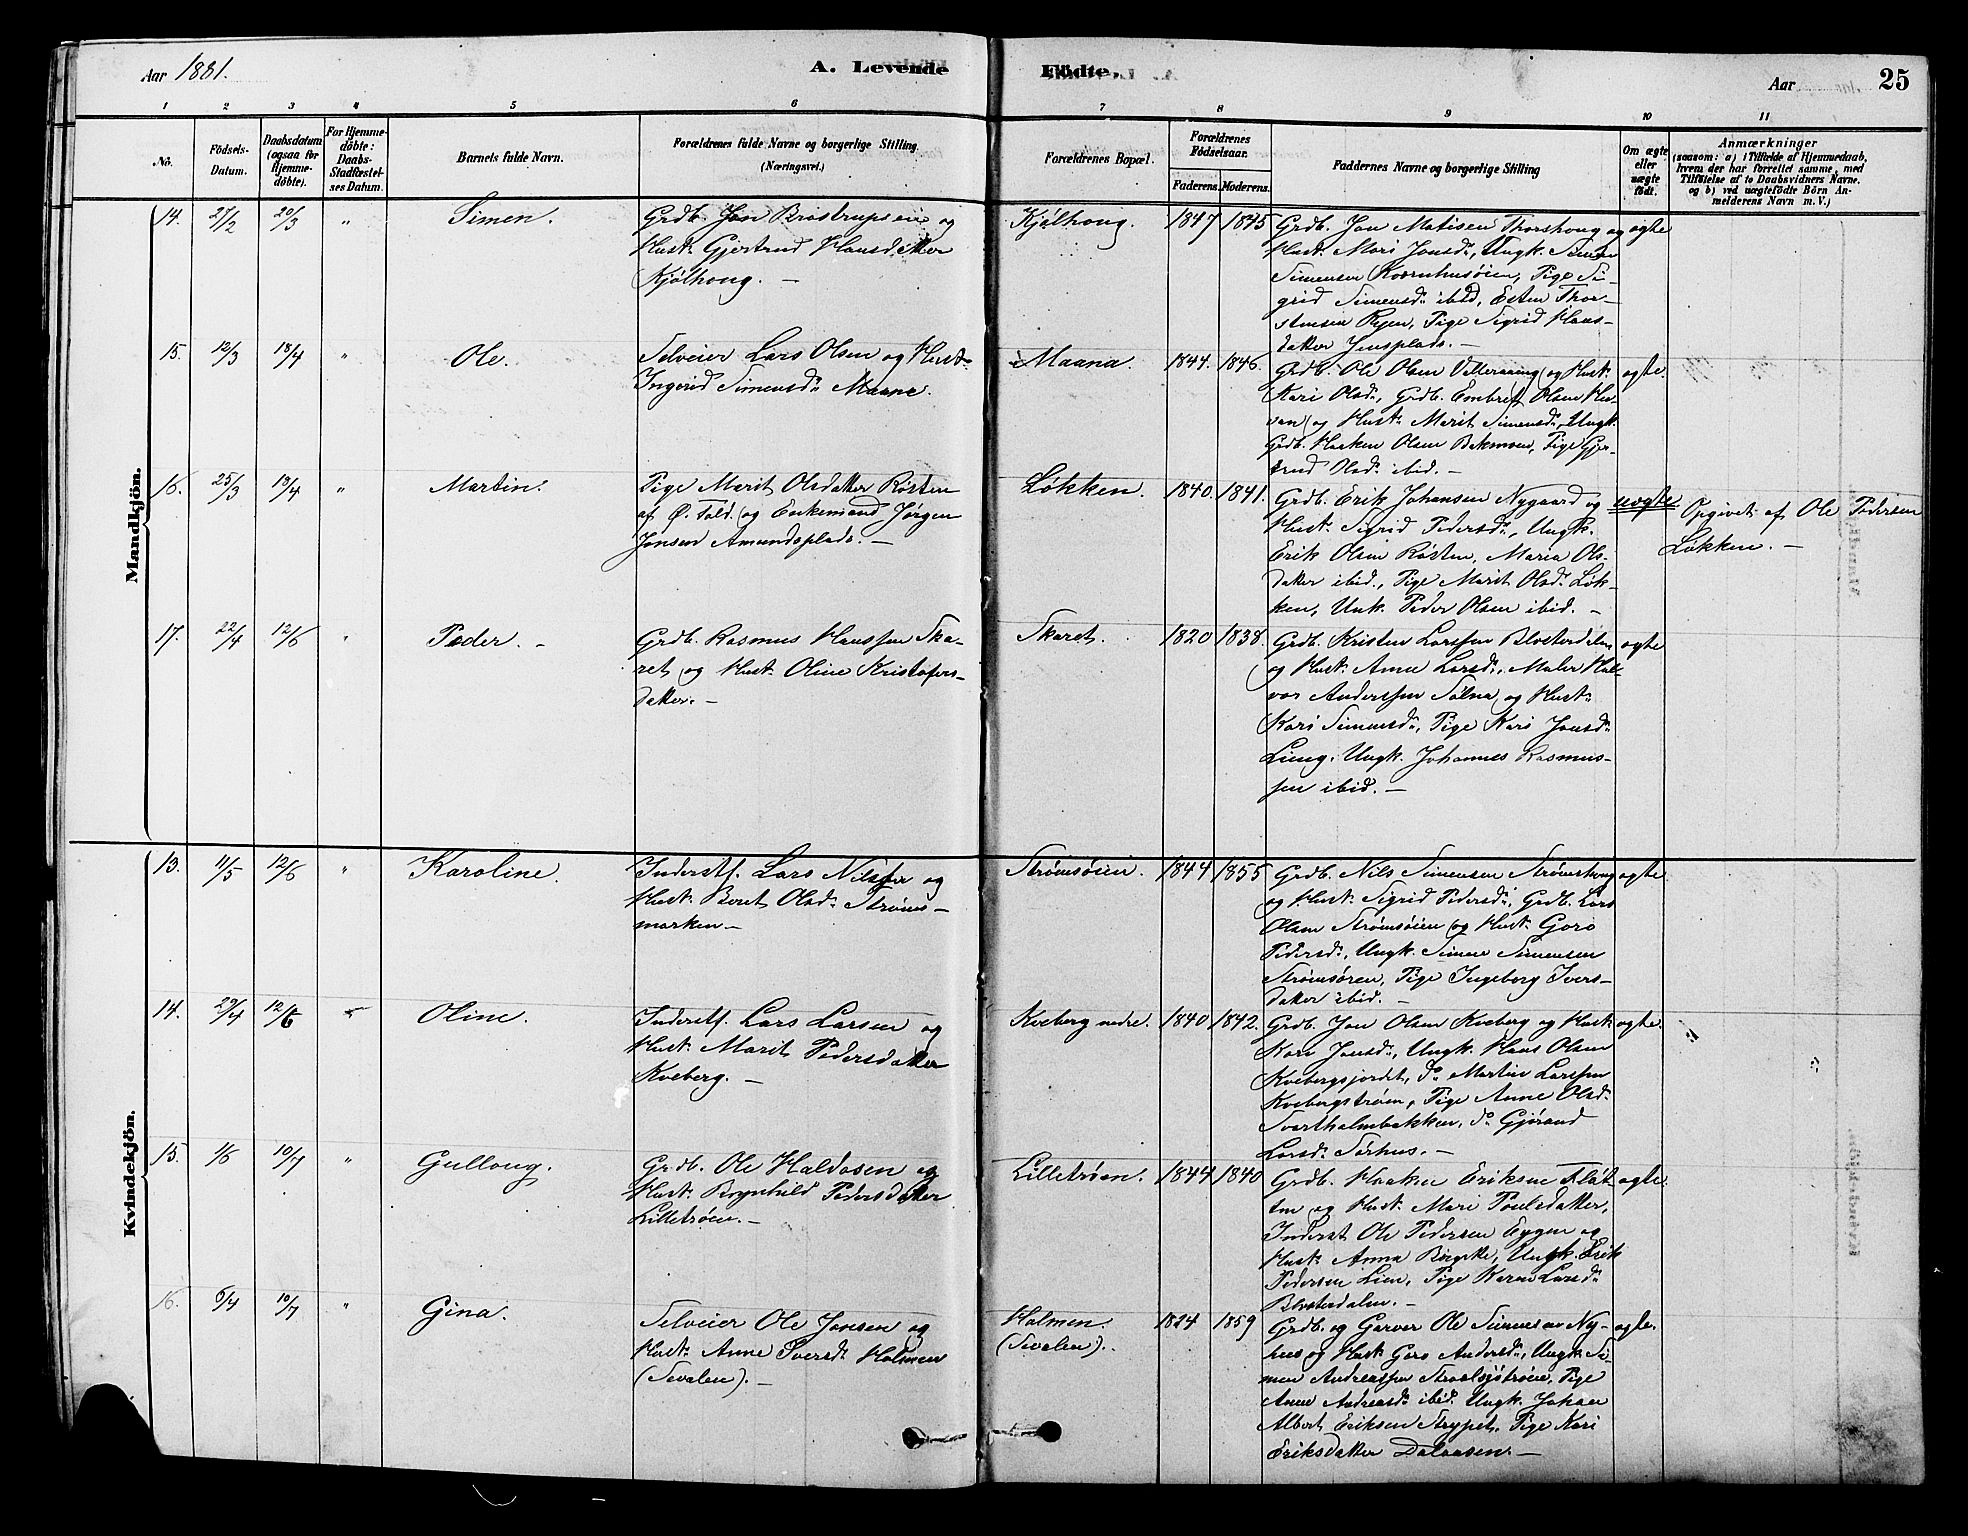 Aar 1881.
A. Levende Födte.
Aar
25
1 2 3 4 5 6 7 8 9 10 11
No.
Födsels-
Datum.
Daabsdatum
(ogsaa for
Hjemme-
döbte).
For Hjemme-
döbte:
Daabs-
Stadfæstel-
ses Datum.
Barnets fulde Navn.
Forældrenes fulde Navne og borgerlige Stilling
(Næringsvei.)
Forældrenes Bopæl.
Forældrenes
Födselsaar.
Faderens. Moderens.
Faddernes Navne og borgerlige Stilling
Om ægte
eller
uægte
födt.
Anmærkninger
(saasom: a) i Tilfælde af Hjemmedaab,
hvem der har forrettet samme, med
Tilföielse af to Daabsvidners Navne.
og b) ved uægtefödte Börn An-
melderens Navn m. V.)
Mandkjön.
14. 27/2 20/3 " Simen.
Grdb. Jon Brostrupsen og
Hust: Gjertrud Hansdatter
Kjølhoug. —
Kjølhoug. 1847 1845
Grdb. Jon Matisen Thorshoug og
Hust: Mari Jonsd:, Ungk. Simen
Simensen Kvernhusøien, Pige Si-
grid Simensd: ibid, Esten Thor-
stensen Ryen, Pige Sigrid Hans-
datter Jensplads. —
ægte
15. 12/3 18/4 " Ole.
Selveier Lars Olsen og Hust:
Ingerid Simensd: Maana.
Maana. 1844. 1846.
Grdb. Ole Olsen Vælleraaning og Hust:
Kari Olsd:, Grdb. Embret Olsen Hu-
san og Hust: Marit Simensd:, Ungk.
Grdb. Haaken Olsen Bakmoen, Pige Gjer-
trud Olsd: ibid. —
ægte.
16. 25/3 18/4 " Martin.
Pige Marit Olsdatter Røsten
af Ø. Told. og Enkemand Jørgen
Jonsen Amundsplads. —
Løkken. 1840. 1841.
Grdb. Erik Johansen Nygaard og
Hust: Sigrid Pedersd:, Ungk.
Erik Olsen Røsten, Maria Ols-
datter ibid., Pige Marit Olsd: Løk-
ken, Unk. Peder Olsen ibid. —
uægte
Opgivet af Ole Pedersen
Løkken. —
17. 22/4 12/6 " Peder. —
Grdb. Rasmus Hanssen Ska-
ret og Hust: Oline Kristofers-
datter. —
Skaret. 1820 1838.
Grdb. Kristen Larssen Blæsterdalen
og Hust: Anne Larsd:, Maler Hal-
vor Anderssen Tølna og Hust:
Kari Simensd:, Pige Kari Jonsd:
Lieng, Ungk. Johannes Rasmus-
sen ibid. —
ægte
Kvindekjön.
13. 11/5 12/6 " Karoline.
Inderstf. Lars Nilssen og
Hust: Beret Olsd: Strøms-
marken —
Strømsøien. 1844 1855
Grdb. Nils Simensen Strømshoug
og Hust: Sigrid Pedersd:, Grdb. Lars
Olsen Strømsøien og Hust: Goro
Pedersd:, Ungk. Simen Simensen
Strømsøren, Pige Ingeborg Ivers-
datter ibid. —
ægte.
14. 29/4 12/6 Oline.
Inderstf. Lars Larsen og
Hust: Marit Pedersdatter
Kveberg. —
Kveberg nedre. 1840 1842.
Grdb. Jon Olsen Kveberg og Hust:
Kari Jonsd:, Ungk. Hans Olsen
Kvebergsjordet, d: Martin Larssen
Kvebergstrøen, Pige Anne Olsd:
Svartholmbakken, d: Gjørand
Larsd: Sørhus. —
ægte.
15. 1/6 10/7 " Gulloug.
Grdb. Ole Haldosen og
Hust: Brynhild Pedersdatter
Lilletrøen. —
Lilletrøen. 1844 1840
Grdb. Haaken Eriksen Flåt-
ten og Hust: Mari Poulsdatter,
Inderst Ole Pedersen Eggen og
Hust: Anna Birgitte, Ungk. Erik
Pedersen Lien, Pige Karen Larsd:
Blæsterdalen. —
ægte.
16. 6/4 10/7 " Gina.
Selveier Ole Jonsen og
Hust: Anne Iversd: Holmen
(Sevalen). —
Holmen
(Sevalen). 1824 1859
Grdb. og Garver Ole Simensen Ny-
hus og Hust: Goro Andersd:, Ungk. Si-
men Andreassen Straalsjøtrøen, Pige
Anne Andreasd: ibid, Ungk. Johan
Albert Eriksen Strypet, Pige Kari
Eriksdatter Dalaasen. —
ægte.